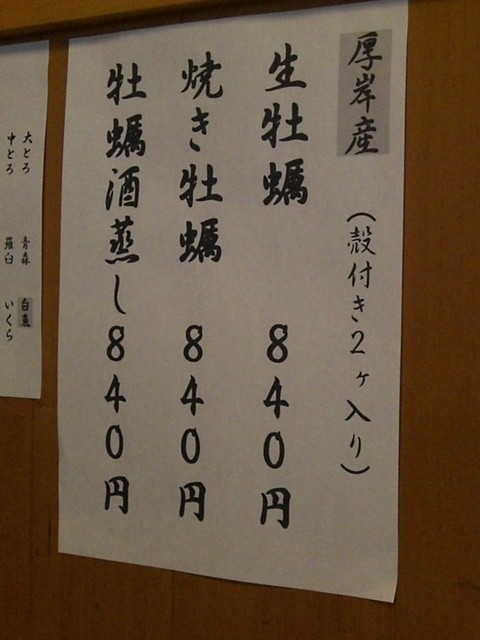 厚岸産 (殻付き2ヶ入り)
生牡蠣 840円
焼き牡蠣 840円
牡蠣酒蒸し 840円
大とろ 青森 白魚
中とろ 羅臼 いくら